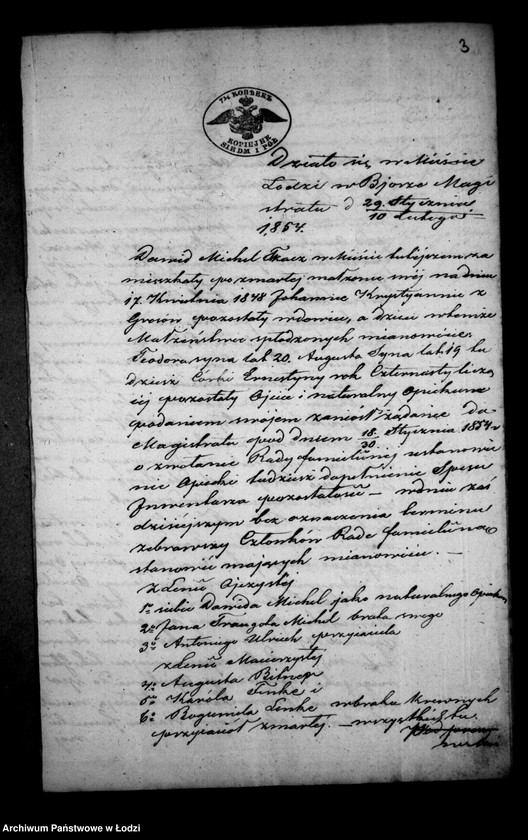 3
7½ КОПѢЕКЪ
KOPIEJEK
SIEDM I PÓŁ
Działo się w Mieście
Łodzi w Bjorze Magi
stratu d 29 Stycznia
10 Lutego
1854.
Dawid Michel Tkacz w Mieście tutejszem za
mieszkały po zmarłej małżonce mój na dniu
17. Kwietnia 1848 Johannie Krystyannie z
pozostały wdowiec, a dzieci w temże
Małżeństwie spłodzonych mianowicie:
Teodora syna lat 20. Augusta Syna lat 19 tu
dzież Corki Ernestyny rok Czternasty licz
ej pozostały Ojciec i naturalny Opiekun
podaniem mojem zaniosł żądanie do
Magistratu pod dniem 18/30 Stycznia 1854 r
o zwołanie Rady familijnej ustanowie
nie Opieki tudzież dopełnienie Spisu
Inwentarza pozostałości – w dniu zaś
dzisiejszym bez oznaczenia terminu
zebrawszy Członków Rade familijną
stanowić mających mianowicie. –
z Linii Ojczystej
1o siebie Dawida Michel jako naturalnego Opiekuna
2o Jana Michel brata swego
3o Antoniego Ulrich przyjaciela
z Linii Macierzystej
4o Augusta
5o Karola i
6o Bogumiła Linke w braku krewnych
przyjaciół zmarłej. – wszystkich tu
Archiwum Państwowe w Łodzi